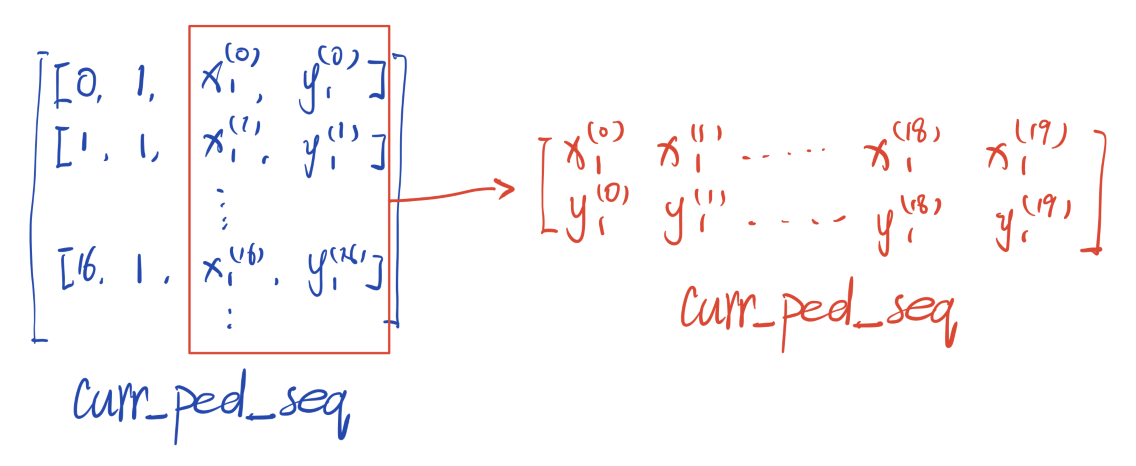 [0, 1, x₁⁽⁰⁾, y₁⁽⁰⁾]
[1, 1, x₁⁽¹⁾, y₁⁽¹⁾]
⋮
[16, 1, x₁⁽¹⁶⁾, y₁⁽¹⁶⁾]
⋮
curr_ped_seq
x₁⁽⁰⁾ x₁⁽¹⁾ ····· x₁⁽¹⁸⁾ x₁⁽¹⁹⁾
y₁⁽⁰⁾ y₁⁽¹⁾ ····· y₁⁽¹⁸⁾ y₁⁽¹⁹⁾
curr_ped_seq